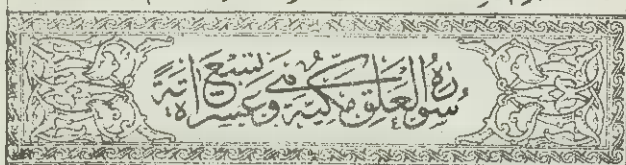 سورة العلق مكية وهى تسع عشرة آية